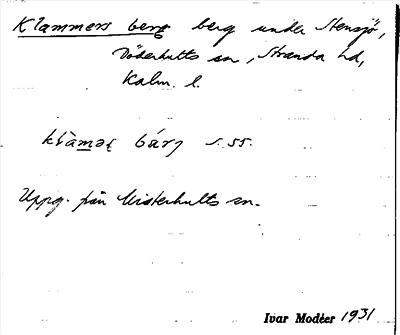 Klammers berg berg under Stensjö,
Döderhults sn, Stranda hd,
Kalm. l.
klàmaʂ bárj s. 55.
Uppg. från Misterhults sn.
Ivar Modéer 1931